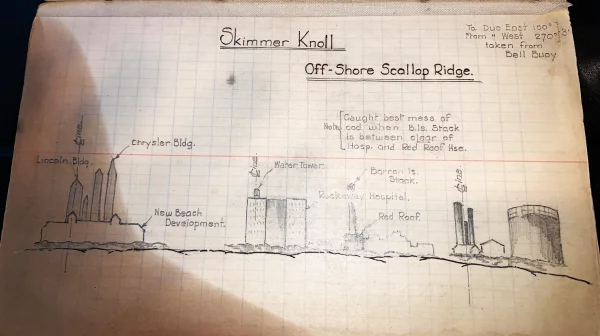 Skimmer Knoll
Off-Shore Scallop Ridge.
To Due East 100°
From " West 270°
taken from
Bell Buoy
Note
Caught best mess of
cod when B.Is. Stack
is between clear of
Hosp. and Red Roof Hse.
Line
Chrysler Bldg.
Lincoln Bldg.
New Beach
Development.
Line
Water Tower
Rockaway Hospital.
Barren Is.
Stack.
Red Roof.
Line